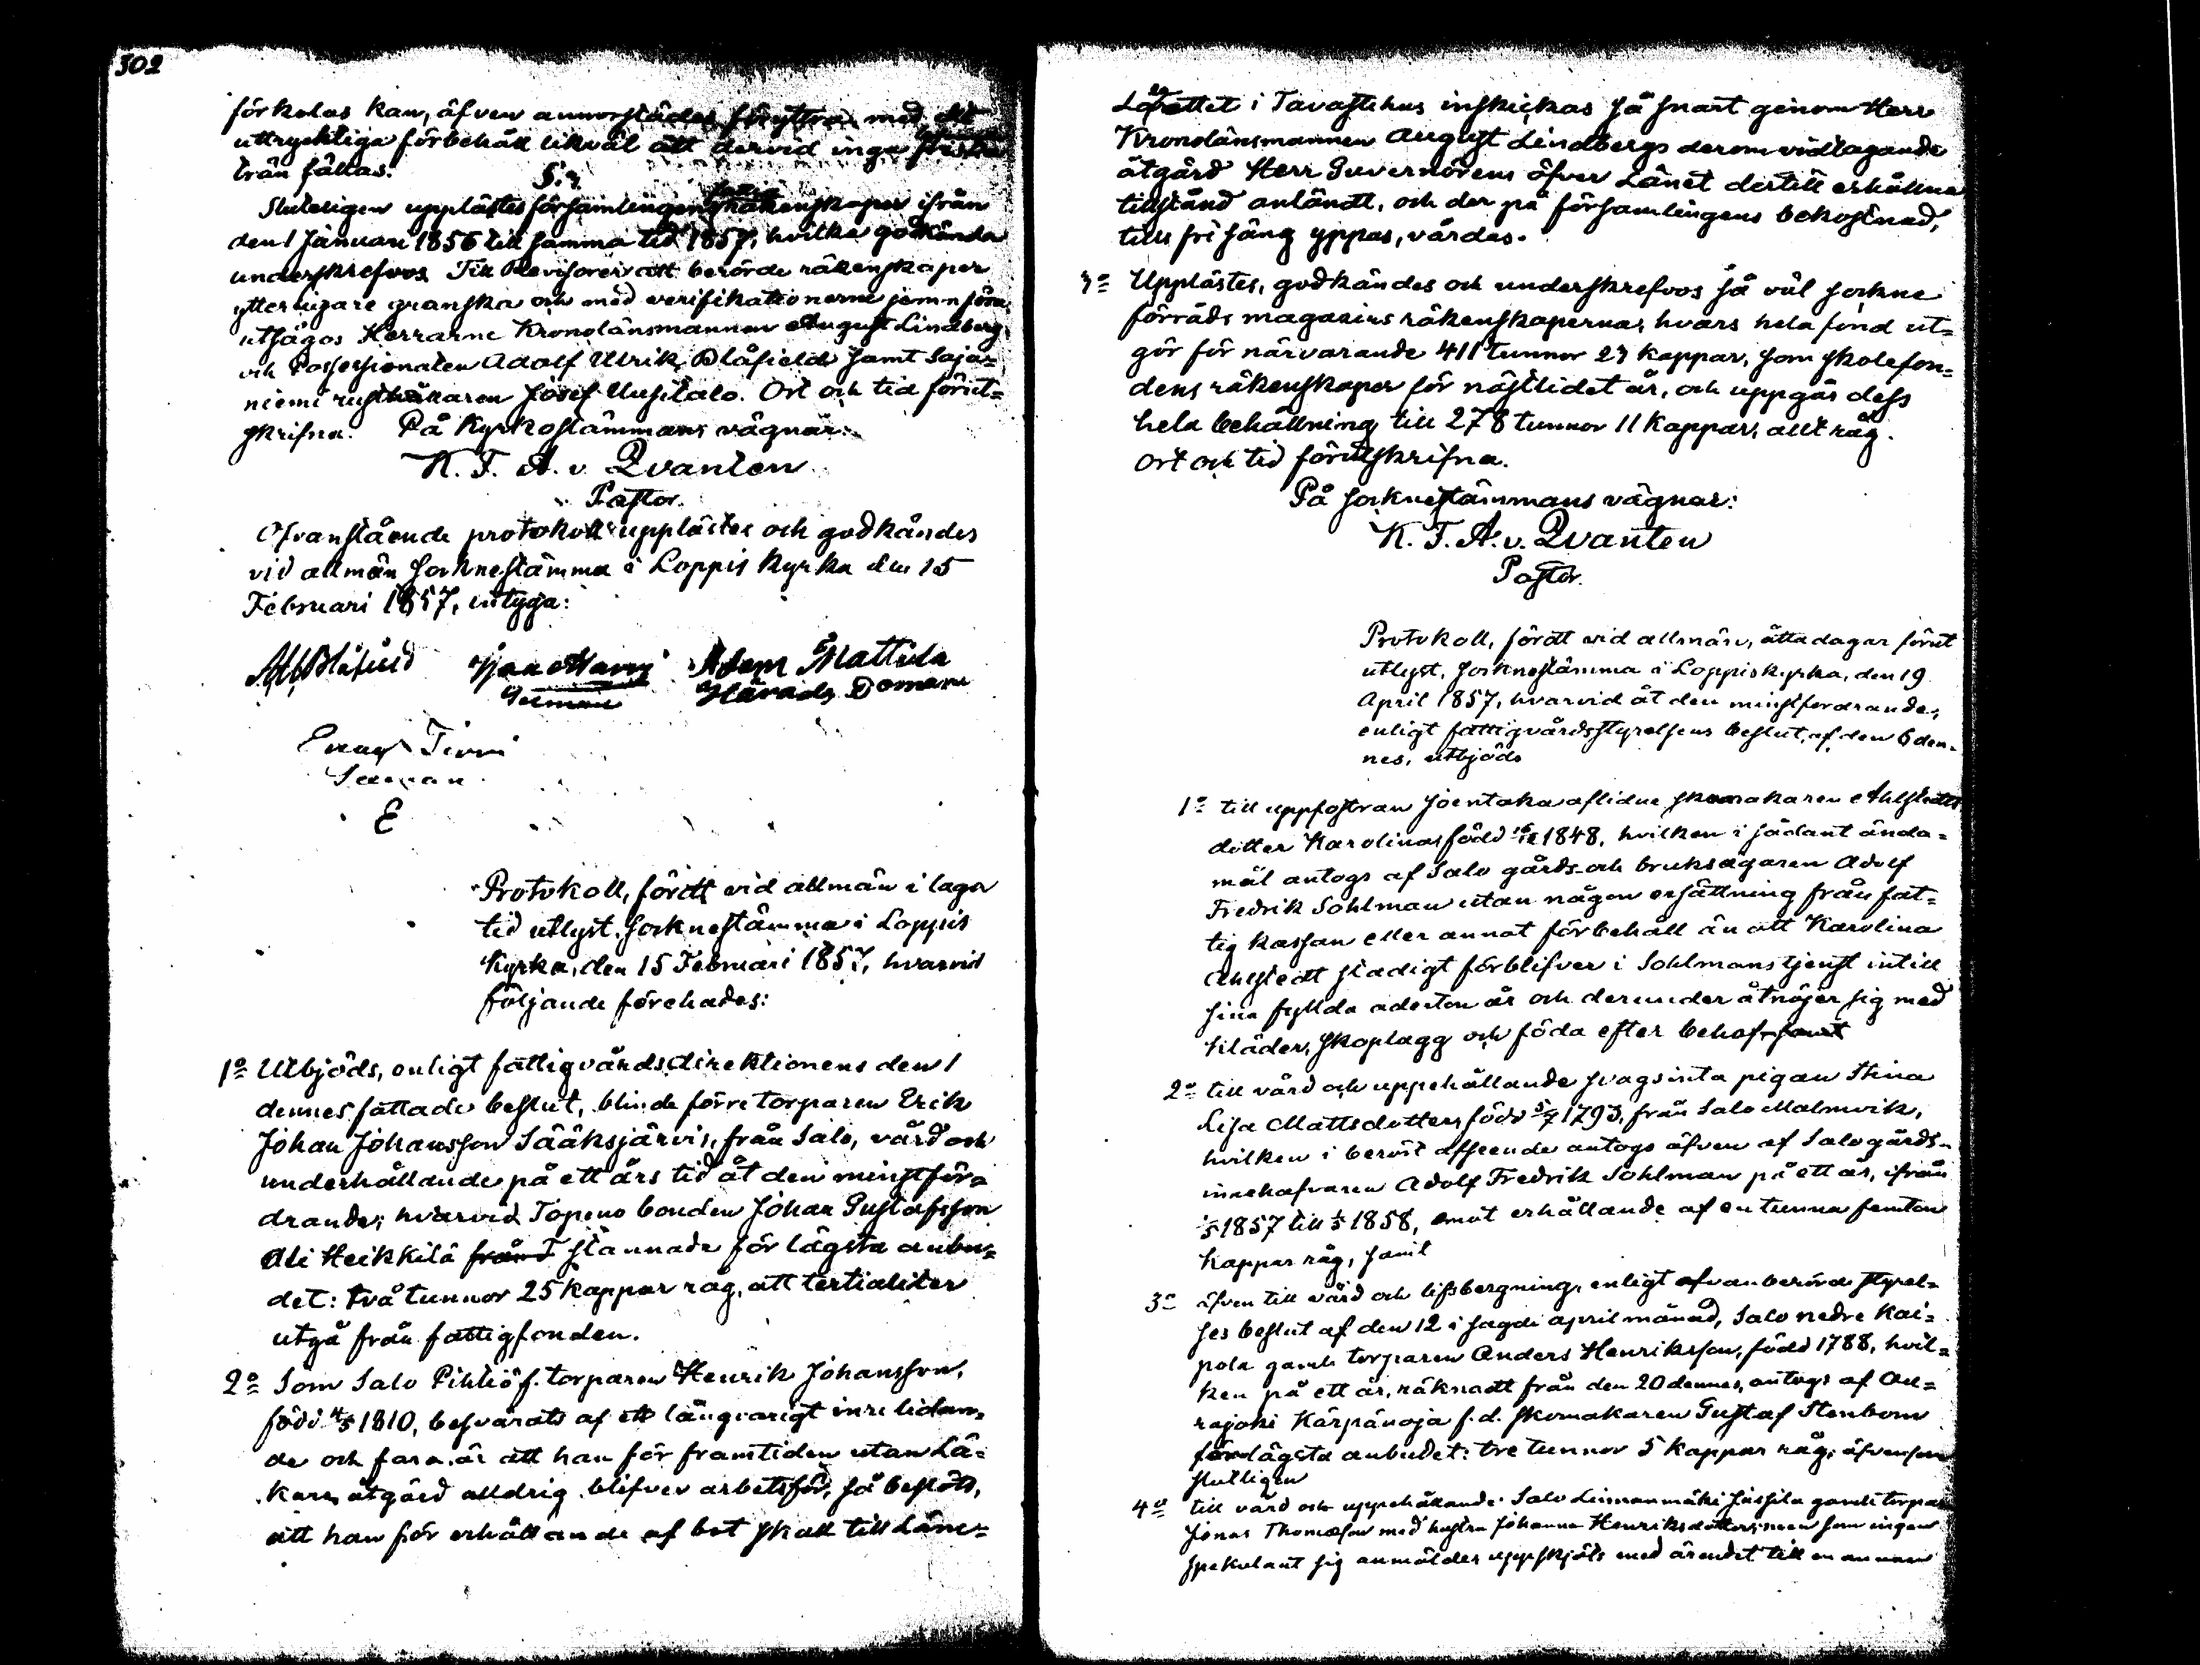 302
förkolas kan, äfven annorstädes föryttra med det
uttryckliga förbehåll likväl att dervid inga friska
trän fällas.
§.7.
Sluteligen upplästes församlingens räkenskaper ifrån
den 1 Januari 1856 till samma tid 1857, hvilka godkända
underskrefvos. Till Revisorer att berörde räkenskaper
ytterligare granska och med verifikationerne jemnföra
utsågos Herrarne Kronolänsmannen August Lindberg
och Possessionaten Adolf Ulrik Blåfield samt Saja-
niemi rusthållaren Josef Uusitalo. Ort och tid förut-
skrifna. På Kyrkostämmans vägnar:
K. F. A. v. Qvanten
Pastor.
Ofvanstående protokoll upplästes och godkändes
vid allmän Socknestämma i Loppis Kyrka den 15
Februari 1857, intyga:
Adam Mattila
Härads Domare
E
Protokoll, fördt vid allmän i laga
tid utlyst Socknestämma i Loppis
Kyrka, den 15 Februari 1857, hvarvid
följande förehades:
1o Utbjöds, enligt fattigvårdsdirektionens den 1
dennes fattade beslut, blinde förre torparen Erik
Johan Johansson Sääksjärvis, från Salo, vård och
underhållande på ett års tid åt den minstfor-
drande; hvarvid Topeno bonden Johan Gustafsson
Ali Heikkilä från T stannade för lägsta anbu-
det: två tunnor 25 kappar råg, att tertialiter
utgå från fattigfonden.
2o Som Salo Pihliö f. torparen Henrik Johansson,
född 4/5 1810, besvärats af ett långvarigt inre lidan-
de och fara är att han för framtiden utan Lä-
kares åtgärd alldrig blifver arbetsför, så beslöts,
att han för erhållande af bot skall till Läns-
Lazarettet i Tavastehus inskickas så snart genom Herr
Kronolänsmannen August Lindbergs derom vidtagande
åtgärd Herr Guvernörens öfver Länet dertill erhållna
tillstånd anländt, och der på församlingens bekostnad,
tills fri säng yppas, vårdas.
3o Upplästes, godkändes och underskrefvos så väl sockne
förråds magasins räkenskaperna, hvars hela fond ut-
gör för närvarande 411 tunnor 27 kappar, som skolefon-
dens räkenskaper för nästlidet år, och uppgår dess
hela behållning till 278 tunnor 11 kappar, allt råg.
Ort och tid förutskrifna.
På Socknestämmans vägnar:
K. F. A. v. Qvanten
Pastor.
Protokoll, fördt vid allmän, åtta dagar förut
utlyst, Socknestämma i Loppis kyrka, den 19
April 1857, hvarvid åt den minstfordrande,
enligt fattigvårdsstyrelsens beslut af den 6 den-
nes, utbjöds
1o till uppfostran Joentaka aflidne skomakaren Ahlstedts
dotter Karolina, född 1848, hvilken i sådant ända-
mål antogs af Salo gårds- och bruksägaren Adolf
Fredrik Sohlman utan någon ersättning från fat-
tig kassan eller annat förbehåll än att Karolina
Ahlstedt stadigt förblifver i Sohlmans tjenst intill
sina fyllda aderton år och derunder åtnöjer sig med
kläder, skoplagg och föda efter behof, samt
2o till vård och uppehållande svagsinta pigan Stina
Lisa Mattsdotter, född 5/7 1793, från Salo Malmvik,
hvilken i berört afseende antogs äfven af Salo gårds-
innehafvaren Adolf Fredrik Sohlman på ett år, ifrån
1/5 1857 till 1/5 1858, emot erhållande af en tunna femton
kappar råg, samt
3o äfven till vård och lifsbergning, enligt ofvanberörde styrel-
ses beslut af den 12 i sagde april månad, Salo nedre Kai-
pola gamle torparen Anders Henriksson, född 1788, hvil-
ken på ett år, räknadt från den 20 dennes, antogs af
rajoki Kärpänoja f.d. skomakaren Gustaf Stenbom
för lägsta anbudet: tre tunnor 5 kappar råg; äfvensom
slutligen
4o till vård och uppehållande Salo Liimanmäki Jussila gamle torparen
Jonas Thomasson med hustru Johanna Henriksdotter; men som ingen
spekulant sig anmälde, uppskjöts med ärendet till en annan